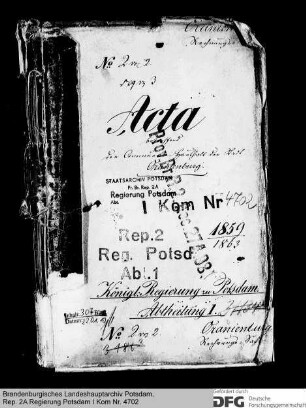 Oranienburg
No 2
Acta
den Communal Haushalt der Stadt
Oranienburg.
STAATSARCHIV POTSDAM
Pr. Br. Rep. 2A
Regierung Potsdam
Abt. I Kom Nr 4702
1859
1863
Rep. 2
Reg. Potsd.
Abt. 1
Königl. Regierung zu Potsdam
Abtheilung I.
Oranienburg
No 2
Brandenburgisches Landeshauptarchiv Potsdam,
Rep. 2A Regierung Potsdam I Kom Nr. 4702
Gefördert durch
DFG Deutsche
Forschungsgemeinschaft